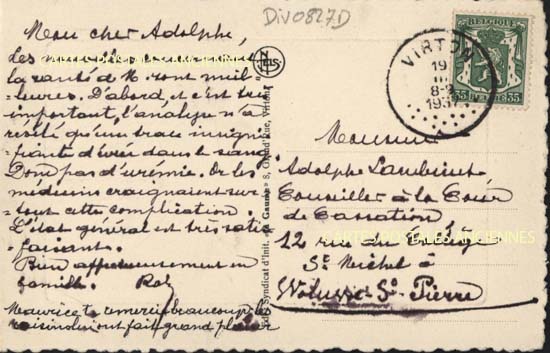 Div0827D
Mon cher Adolphe,
Les nouvelles
CARTES POSTALES ANCIENNES
la santé de M. sont meil-
leures. D'abord, et c'est très
important, l'analyse n'a
révélé qu'une trace insigni-
fiante d'urée dans le sang
Donc pas d'urémie. Or les
médecins craignaient sur-
tout cette complication.
L'état général est très satis-
faisant.
Bien affectueusement en
famille. Rob
Maurice te remercie beaucoup les
raisins lui ont fait grand plaisir
Syndicat d'Init. de Gaume » 8, Grand'Rue, Virton
BELGIQUE
35 BELGIE 35
VIRTON
19
III
1937
Monsieur
Adolphe Lambinet
Conseiller à la Cour
de Cassation
CARTES POSTALES ANCIENNES
12 rue du Collège
St Michel à
Woluwe-St-Pierre